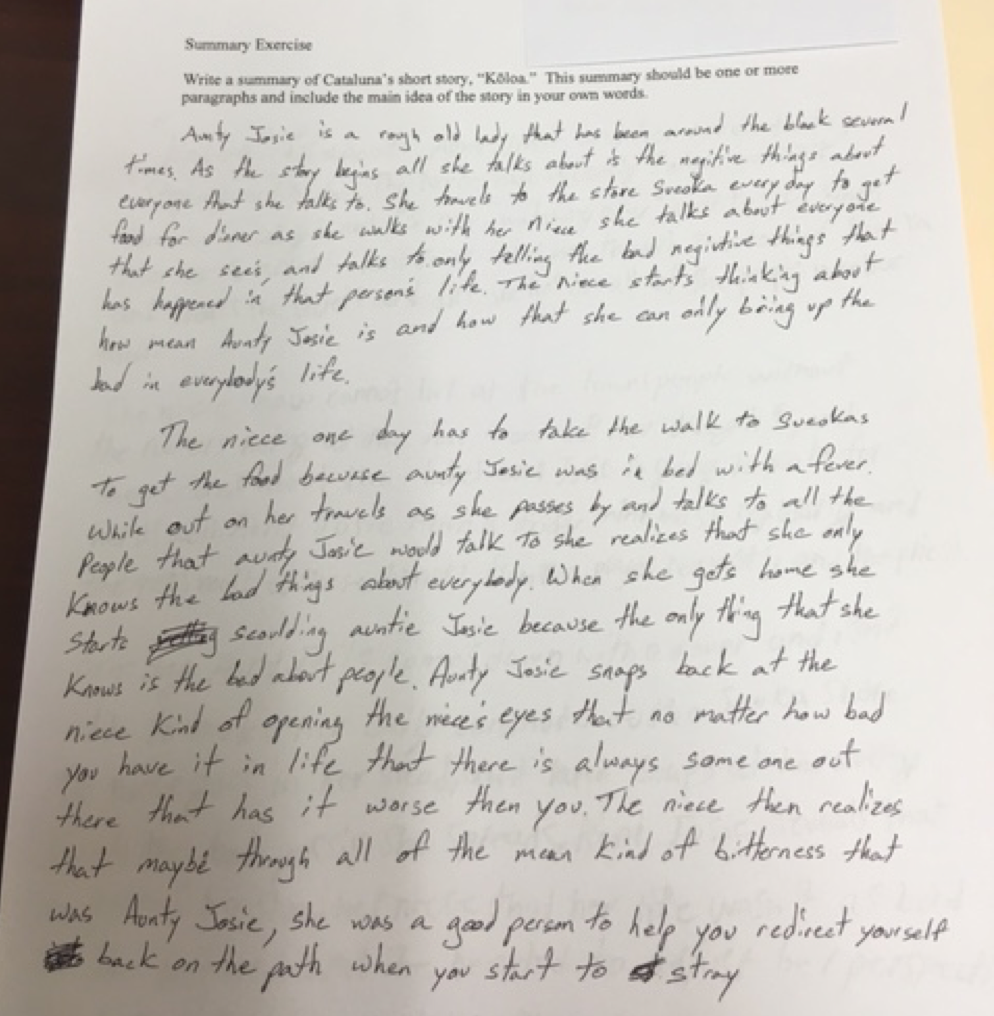 Summary Exercise
Write a summary of Cataluna's short story, "Kōloa." This summary should be one or more
paragraphs and include the main idea of the story in your own words.
Aunty Josie is a rough old lady that has been around the block several
times. As the story begins all she talks about is the negitive things about
everyone that she talks to. She travels to the store Sueoka every day to get
food for dinner as she walks with her niece she talks about everyone
that she see's, and talks to only telling the bad negivtive things that
has happened in that person's life. The niece starts thinking about
how mean Aunty Josie is and how that she can only bring up the
bad in everybody's life.
The niece one day has to take the walk to Sueokas
To get the food becuase aunty Josie was in bed with a fever.
While out on her travels as she passes by and talks to all the
People that aunty Josie would talk To she realizes that she only
Knows the bad things about everybody. When she gets home she
starts scoulding auntie Josie because the only thing that she
Knows is the bad about people. Aunty Josie snaps back at the
niece Kind of opening the niece's eyes that no matter how bad
you have it in life that there is always some one out
there that has it worse then you. The niece then realizes
that maybe through all of the mean Kind of bitterness that
was Aunty Josie, she was a good person to help you redirect yourself
back on the path when you start to stray